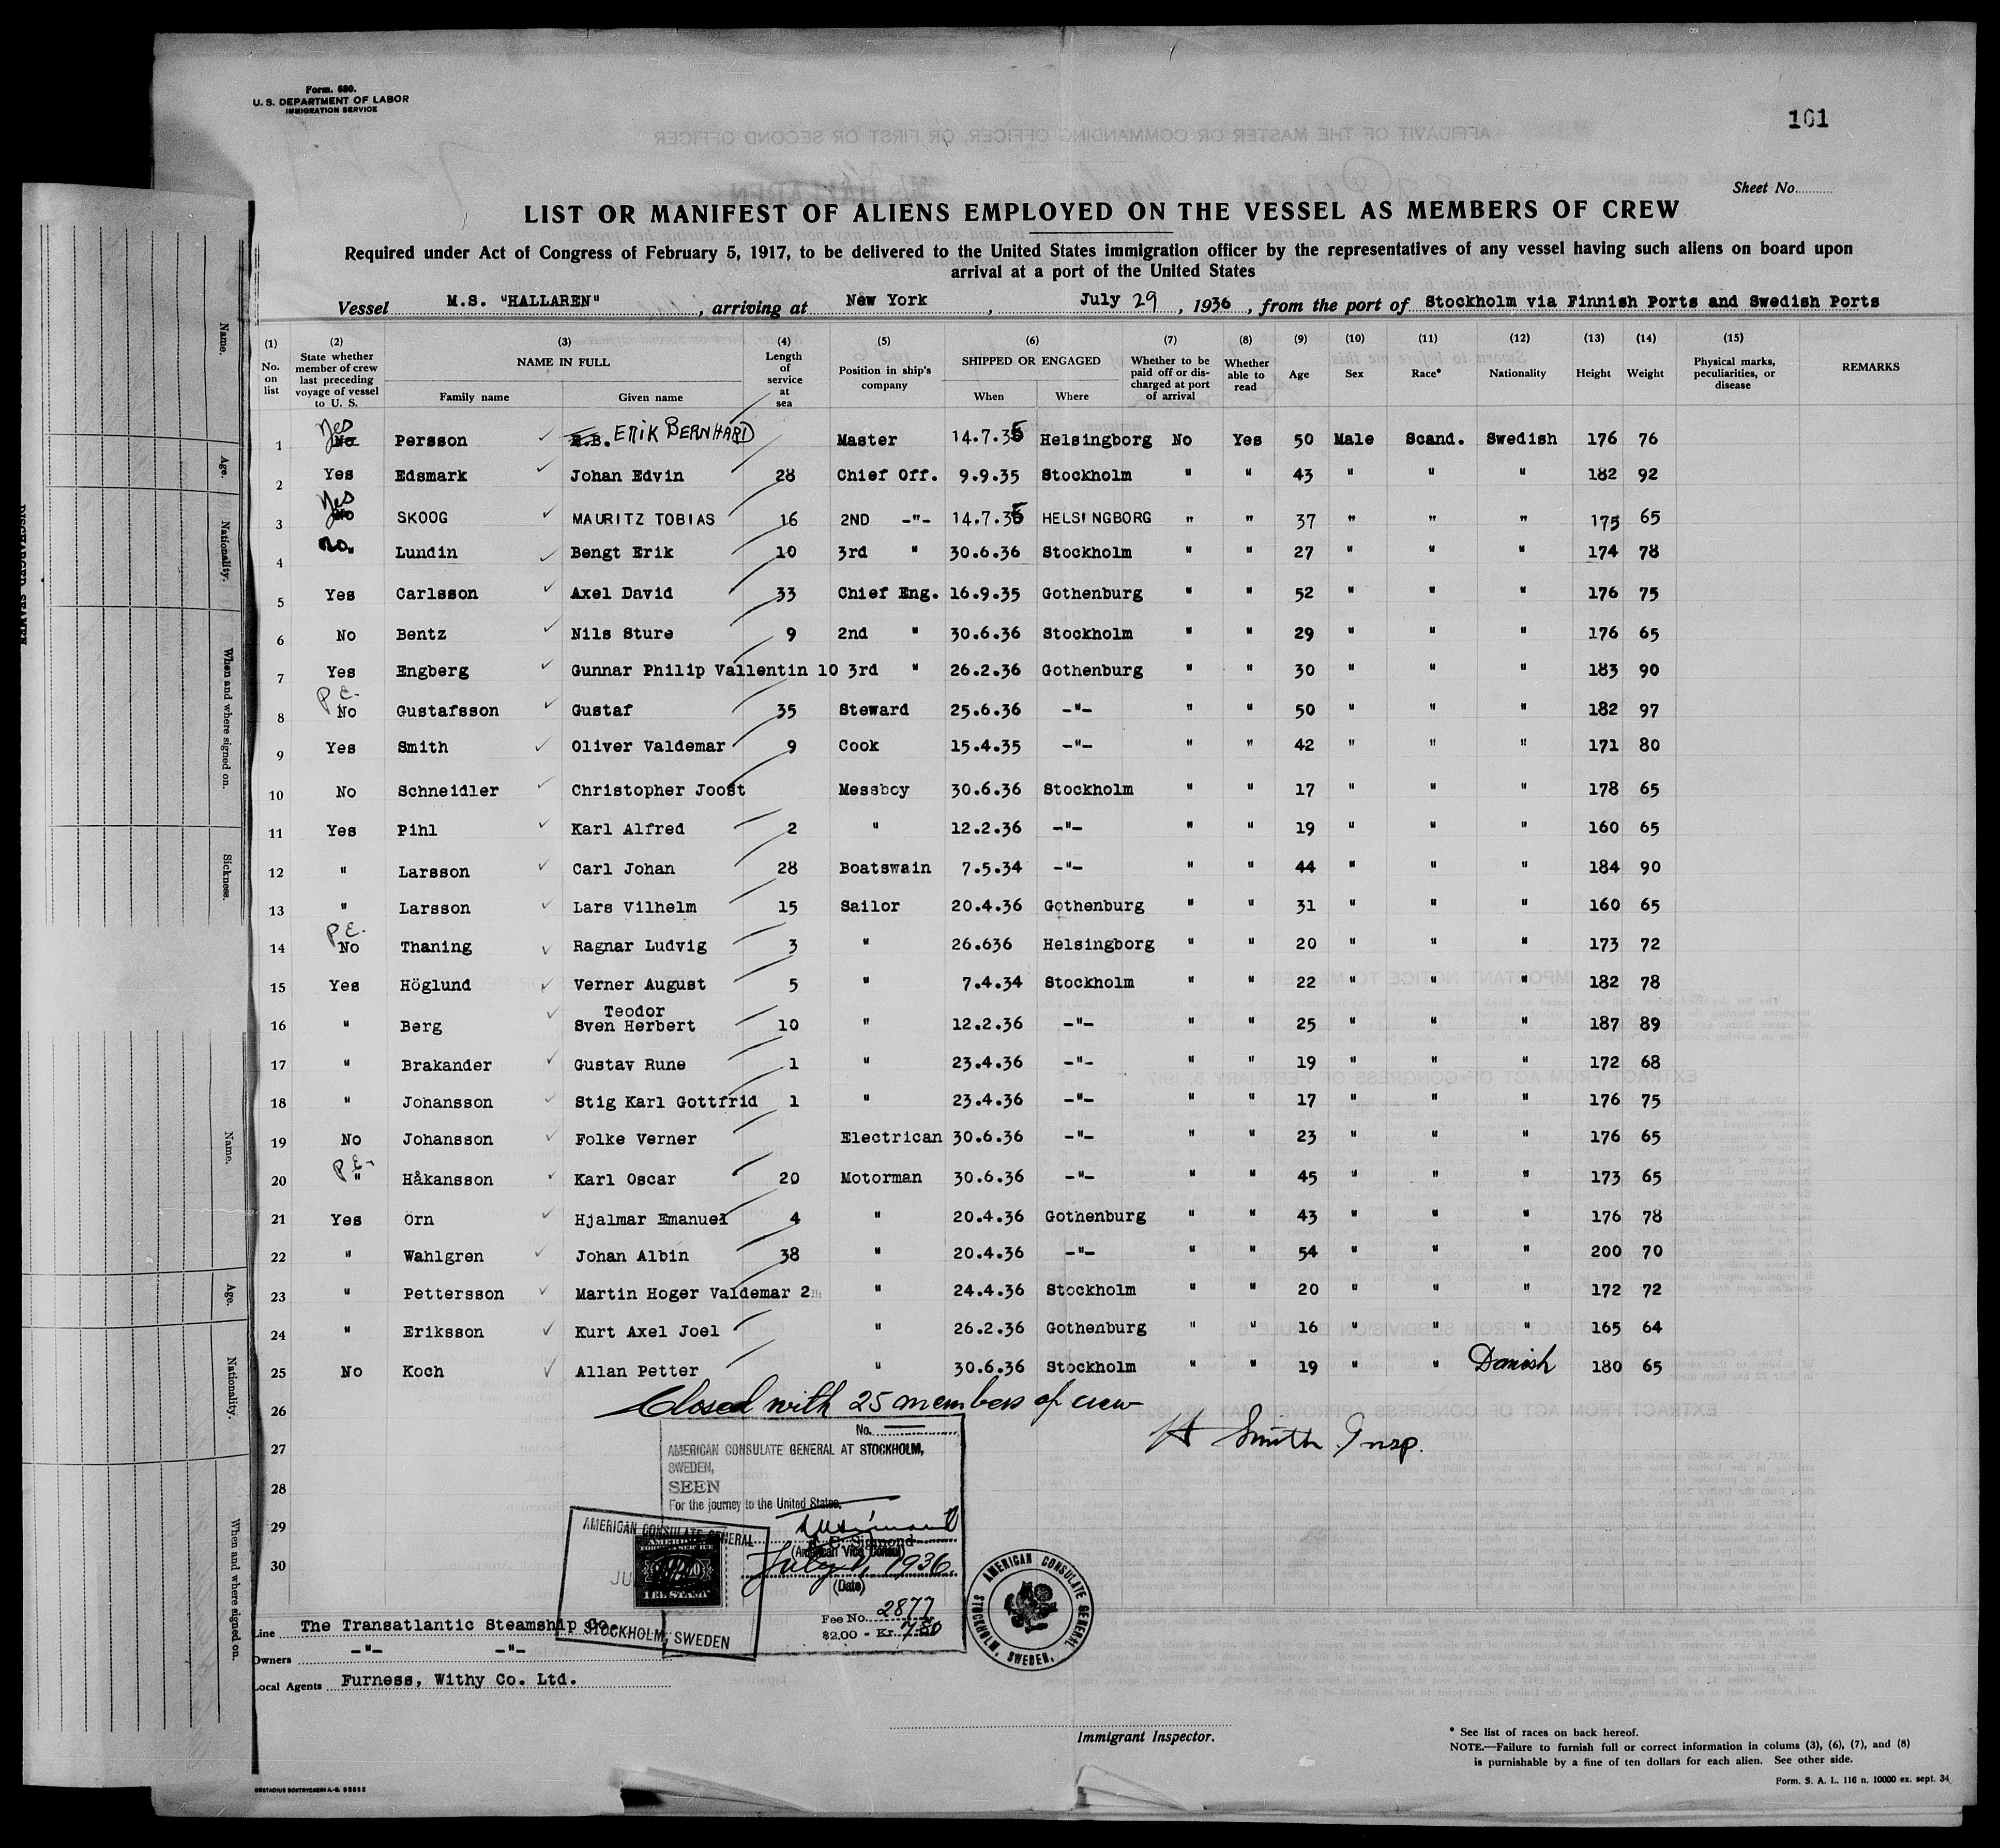 Form. 680.
U. S. DEPARTMENT OF LABOR
IMMIGRATION SERVICE
101
Sheet No.
LIST OR MANIFEST OF ALIENS EMPLOYED ON THE VESSEL AS MEMBERS OF CREW
Required under Act of Congress of February 5, 1917, to be delivered to the United States immigration officer by the representatives of any vessel having such aliens on board upon
arrival at a port of the United States
Vessel M.S. "HALLAREN", arriving at New York, July 29, 1936, from the port of Stockholm via Finnish Ports and Swedish Ports
(1) No. on list (2) State whether member of crew last preceding voyage of vessel to U. S. (3) NAME IN FULL Family name Given name (4) Length of service at sea (5) Position in ship's company (6) SHIPPED OR ENGAGED When Where (7) Whether to be paid off or discharged at port of arrival (8) Whether able to read (9) Age (10) Sex (11) Race* (12) Nationality (13) Height (14) Weight (15) Physical marks, peculiarities, or disease REMARKS
1 Yes No Persson E.B. ERIK BERNHARD Master 14.7.35 Helsingborg No Yes 50 Male Scand. Swedish 176 76
2 Yes Edsmark Johan Edvin 28 Chief Off. 9.9.35 Stockholm " " 43 " " " 182 92
3 Yes No SKOOG MAURITZ TOBIAS 16 2ND -"- 14.7.35 HELSINGBORG " " 37 " " " 175 65
4 no. " Lundin Bengt Erik 10 3rd " 30.6.36 Stockholm " " 27 " " " 174 78
5 Yes Carlsson Axel David 33 Chief Eng. 16.9.35 Gothenburg " " 52 " " " 176 75
6 No Bentz Nils Sture 9 2nd " 30.6.36 Stockholm " " 29 " " " 176 65
7 Yes Engberg Gunnar Philip Vallentin 10 3rd " 26.2.36 Gothenburg " " 30 " " " 183 90
8 P.E. No Gustafsson Gustaf 35 Steward 25.6.36 -"- " " 50 " " " 182 97
9 Yes Smith Oliver Valdemar 9 Cook 15.4.35 -"- " " 42 " " " 171 80
10 No Schneidler Christopher Joost Messboy 30.6.36 Stockholm " " 17 " " " 178 65
11 Yes Pihl Karl Alfred 2 " 12.2.36 -"- " " 19 " " " 160 65
12 " Larsson Carl Johan 28 Boatswain 7.5.34 -"- " " 44 " " " 184 90
13 " Larsson Lars Vilhelm 15 Sailor 20.4.36 Gothenburg " " 31 " " " 160 65
14 P.E. No Thaning Ragnar Ludvig 3 " 26.636 Helsingborg " " 20 " " " 173 72
15 Yes Höglund Verner August 5 " 7.4.34 Stockholm " " 22 " " " 182 78
16 " Berg Teodor Sven Herbert 10 " 12.2.36 -"- " " 25 " " " 187 89
17 " Brakander Gustav Rune 1 " 23.4.36 -"- " " 19 " " " 172 68
18 " Johansson Stig Karl Gottfrid 1 " 23.4.36 -"- " " 17 " " " 176 75
19 No Johansson Folke Verner Electrican 30.6.36 -"- " " 23 " " " 176 65
20 P.E. " Håkansson Karl Oscar 20 Motorman 30.6.36 -"- " " 45 " " " 173 65
21 Yes Örn Hjalmar Emanuel 4 " 20.4.36 Gothenburg " " 43 " " " 176 78
22 " Wahlgren Johan Albin 38 " 20.4.36 -"- " " 54 " " " 200 70
23 " Pettersson Martin Hoger Valdemar 2 " 24.4.36 Stockholm " " 20 " " " 172 72
24 " Eriksson Kurt Axel Joel " 26.2.36 Gothenburg " " 16 " " " 165 64
25 No Koch Allan Petter " 30.6.36 Stockholm " " 19 " " Danish 180 65
26 Closed with 25 members of crew
27 H Smith Insp.
28
29
30
No.
AMERICAN CONSULATE GENERAL AT STOCKHOLM,
SWEDEN,
SEEN
For the journey to the United States.
(American Vice Consul)
July 1, 1936
(Date)
Fee No. 2877
$2.00 - Kr. 7.80
AMERICAN CONSULATE GENERAL
STOCKHOLM, SWEDEN
AMERICAN CONSULATE GENERAL
STOCKHOLM, SWEDEN.
Line The Transatlantic Steamship Co.
Owners -"- -"-
Local Agents Furness, Withy Co. Ltd.
Immigrant Inspector.
* See list of races on back hereof.
NOTE.—Failure to furnish full or correct information in colums (3), (6), (7), and (8)
is purnishable by a fine of ten dollars for each alien. See other side.
Form. S. A. L. 116 n. 10000 ex. sept. 34
Name.
Age.
Nationality.
When and where signed on.
Sickness.
Name.
Age.
Nationality.
When and where signed on.